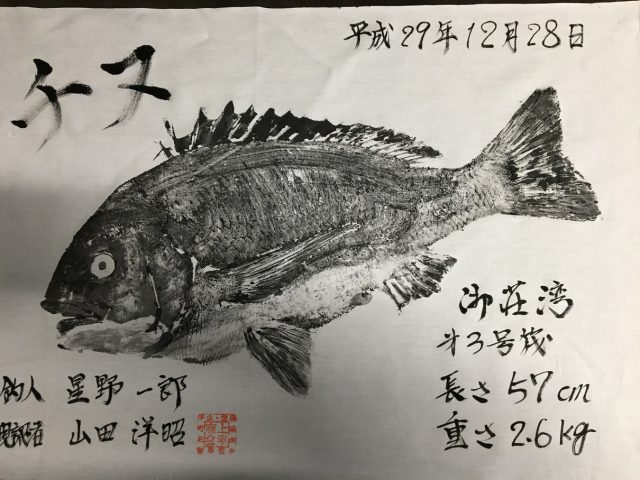 チヌ
平成29年12月28日
御荘湾
才3号筏
長さ57cm
重さ2.6kg
釣人 星野 一郎
現認者 山田 洋昭